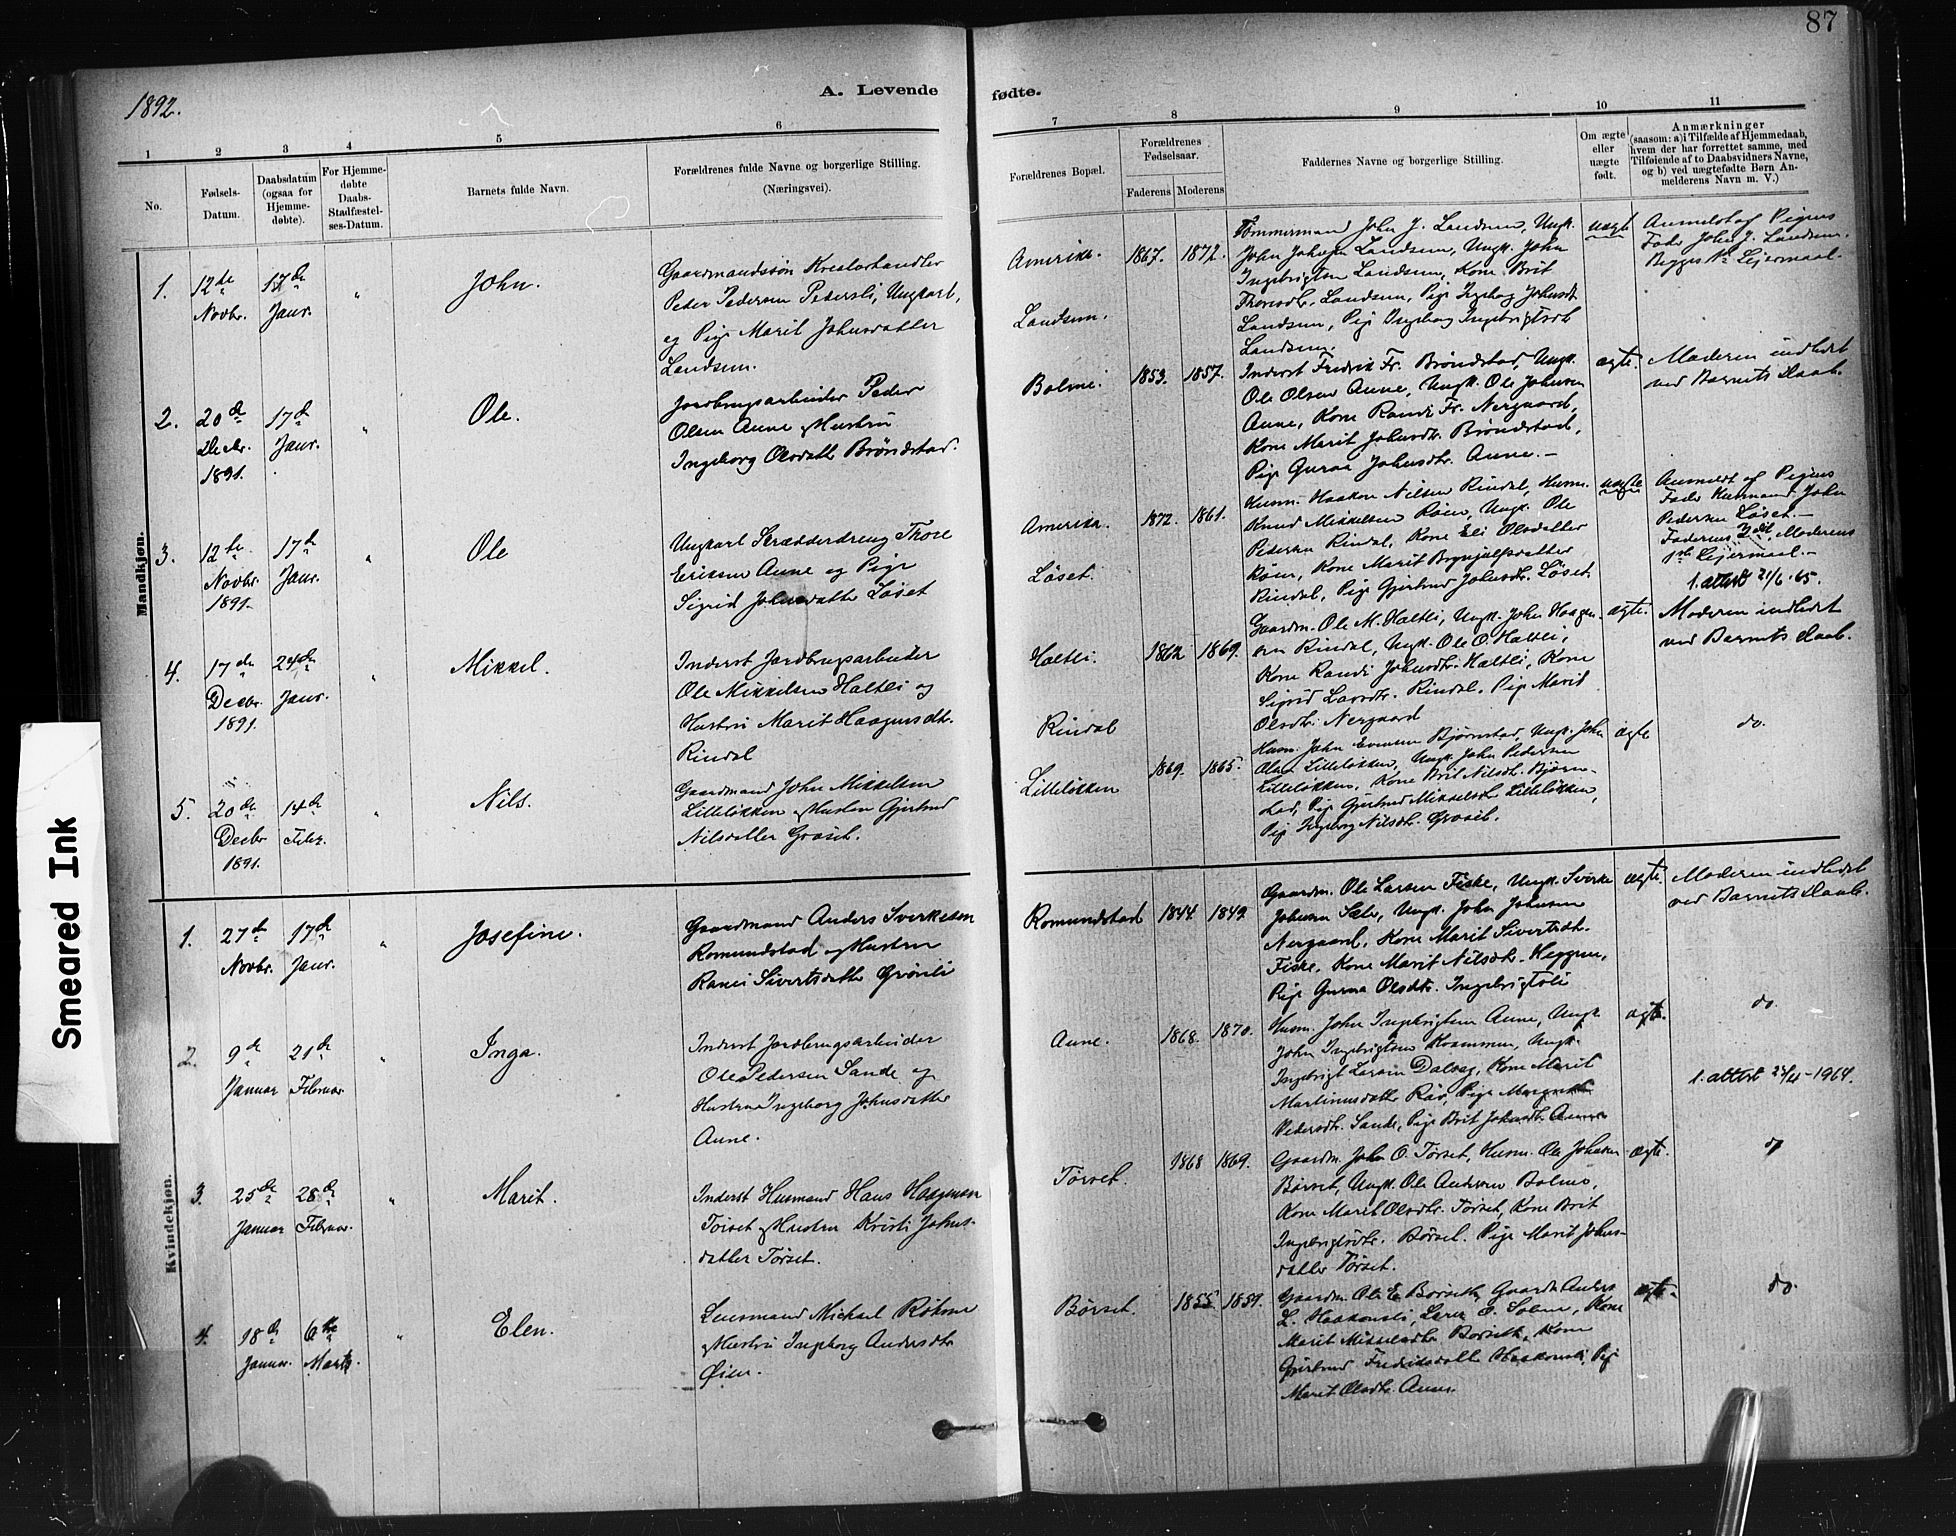 87
1892.
A. Levende
fødte.
1
2
3
4
5
6
7
8
9
10
11
No.
Fødsels-
Datum.
Daabsdatum
(ogsaa for
Hjemme-
døbte).
For Hjemme-
døbte
Daabs-
Stadfæstel-
ses-Datum.
Barnets fulde Navn.
Forældrenes fulde Navne og borgerlige Stilling.
(Næringsvei).
Forældrenes Bopæl.
Forældrenes
Fødselsaar.
Faderens
Moderens
Faddernes Navne og borgerlige Stilling.
Om ægte
eller
uægte
født.
Anmærkninger
(saasom: a) i Tilfælde af Hjemmedaab,
hvem der har forrettet samme, med
Tilføiende af to Daabsvidners Navne,
og b) ved uægtefødte Børn An-
melderens Navn m. V.)
Mandkjøn.
1.
12te
Novbr.
17de
Janr.
"
John.
Gaardmandssøn Kreaturhandler
Peder Pedersen Pedersli, Ungkarl,
og Pige Marit Johnsdatter
Landsem.
Amerika.
Landsem.
1867.
1872.
Tømmermand John J. Landsem, Ungk.
John Johnsen Landsem, Ungk. John
Ingebrigtsen Landsem, Kone Brit
Thoresdtr. Landsem, Pige Ingebog Johnsdt
Landsem, Pige Ingeborg Ingebrigtsdt
Landsem.
uægte
Anmeldt af Pigens
Fader John J. Landsem.
Begges 1ste Leiermaal.
2.
20de
Decbr.
1891.
17de
Janr.
"
Ole.
Jordbrugsarbeider Peder
Olsen Aune & Hustru
Ingeborg Olsdatt. Brøndstad.
Bolme.
1853.
1857.
Inderst Fredrik Fr. Brøndstad, Ungk.
Ole Olsen Aune, Ungk. Ole Johnsen
Aune, Kone Randi Fr. Nergaard,
Kone Marit Johnsdtr. Brøndstad,
Pige Guraa Johnsdtr. Aune. —
ægte.
Moderen indledet
ved Barnets Daab.
3.
12te
Novbr.
1891.
17de
Janr.
"
Ole
Ungkarl Skrædderdreng Thore
Eriksen Aune og Pige
Sigrid Johnsdatter Løset
Amerika.
Løset.
1872.
1861.
Husm. Haakon Nilsen Rindal, Husm.
Knud Mikkelsen Røen, Ungk. Ole
Pedersen Rindal, Kone Eli Olsdatter
Røen, Kone Marit Brynjulfsdatter
Rindal, Pige Gjertrud Johnsdtr. Løset.
uægte
Anmeldt af Pigens
Fader Husmand John
Pedersen Løset. —
Faderens Moderens
1ste Leiermaal. —
1. attest 21/6 65.
4.
17de
Decbr.
1891.
24de
Janr.
"
Mikkel.
Inderst Jordbrugsarbeider
Ole Mikkelsen Haltli og
Hustru Marit Haagensdtr.
Rindal
Haltli.
Rindal
1862
1869.
Gaardm. Ole M. Haltli, Ungk. John Haagen-
sen Rindal, Ungk. Ole O. Haltli,
Kone Randi Johnsdtr. Haltli, Kone
Sigrid Larsdtr. Rindal, Pige Marit
Olsdtr. Nergaard
ægte.
Moderen indledet
ved Barnets Daab.
5.
20de
Decbr
1891.
14de
Febr.
"
Nils.
Gaardmand John Mikkelsen
Lilleløkken & Hustru Gjertrud
Nilsdatter Graset.
Lilleløkken
1869.
1865.
Husm. John Evensen Bjørnstad, Ungk. John
Olsen Lilleløkken, Ungk. John Pedersen
Lilleløkken, Kone Brit Nilsdt. Bjørn-
stad, Pige Gjertrud Mikkelsdtr Lilleløkken,
Pige Ingeborg Nilsdtr. Graset.
ægte
do.
Kvindekjøn.
1.
27de
Novbr.
17de
Janr.
"
Josefine.
Gaardmand Anders Sverkesen
Romundstad og Hustru
Ranei Sivertsdatter Grønli
Romundstad
1844
1849.
Gaardm. Ole Larsen Fiske, Ungk. Sverke
Johnsen Sæter, Ungk. John Johnsen
Nergaard, Kone Marit Sivertsdt.
Fiske, Kone Marit Nilsdtr. Heggem,
Pige Guraa Olsdtr. Ingebrigtsli
ægte.
Moderen indledet
ved Barnets Daab.
2.
9de
Januar
21de
Februar
"
Inga.
Inderst Jordbrugsarbeider
Ole Pedersen Sande og
Hustru Ingeborg Johnsdatter
Aune.
Aune.
1868.
1870.
Husm. John Ingebrigtsen Aune, Ungk.
John Ingebrigtsen Kvammen, Ungk.
Ingebrigt Larsen Dalseg, Kone Marit
Martinusdatter Røv, Pige Margrethe
Pedersdtr. Sande, Pige Brit Johnsdtr. Aune
ægte.
do.
1. attest 24/4-1964.
3.
25de
Januar
28de
Februar.
"
Marit.
Inderst Husmand Hans Haagensen
Tørset & Hustru Kristi Johns-
datter Tørset.
Tørset.
1868
1869.
Gaardm. John O. Tørset, Husm. Ole Johnsen
Børset, Ungk. Ole Andersen Bolme,
Kone Marit Olsdtr. Tørset, Kone Brit
Ingebrigtsdtr. Børset. Pige Marit Johns-
datter Tørset.
ægte.
do
4.
18de
Januar.
6te
Marts.
"
Elen.
Lensmand Michael Røhme
& Hustru Ingeborg Andersdtr
Øien.
Børset.
1855
1859.
Gaardm. Ole E. Børseth, Gaardm. Anders
L. Haakonsli, Lærer O. Solem, Kone
Marit Mikkelsdtr Børseth, Kone
Gjertrud Fredriksdatter Haakonsli, Pige
Marit Olsdtr. Aune.
ægte.
do.
Smeared Ink